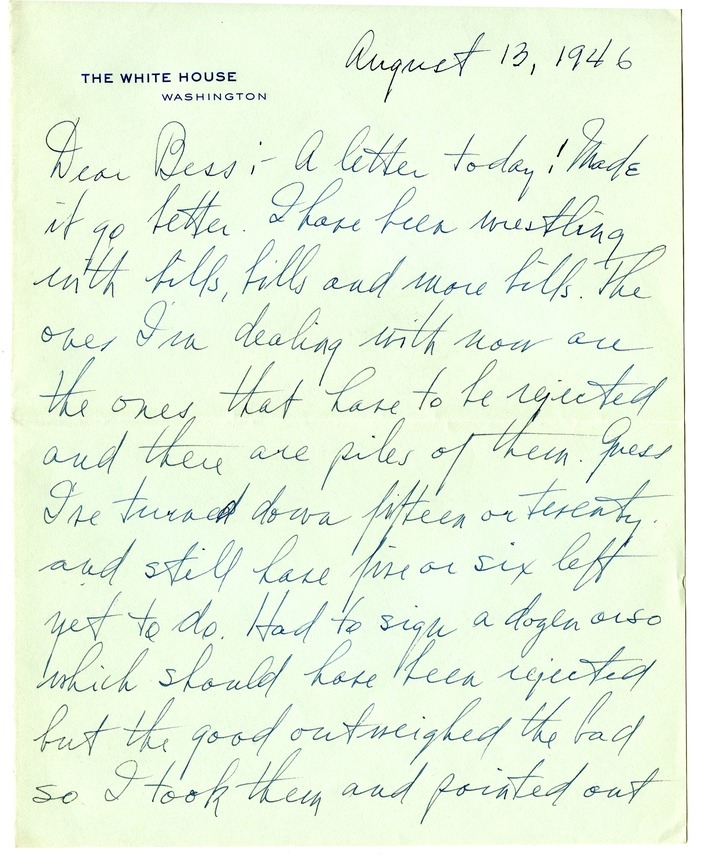 August 13, 1946
THE WHITE HOUSE
WASHINGTON
Dear Bess:- A letter today! Made
it go better. I have been wrestling
with bills, bills and more bills. The
ones I'm dealing with now are
the ones that have to be rejected
and there are piles of them. Guess
I've turned down fifteen or twenty.
and still have five or six left
yet to do. Had to sign a dozen or so
which should have been rejected
but the good outweighed the bad
so I took them and pointed out